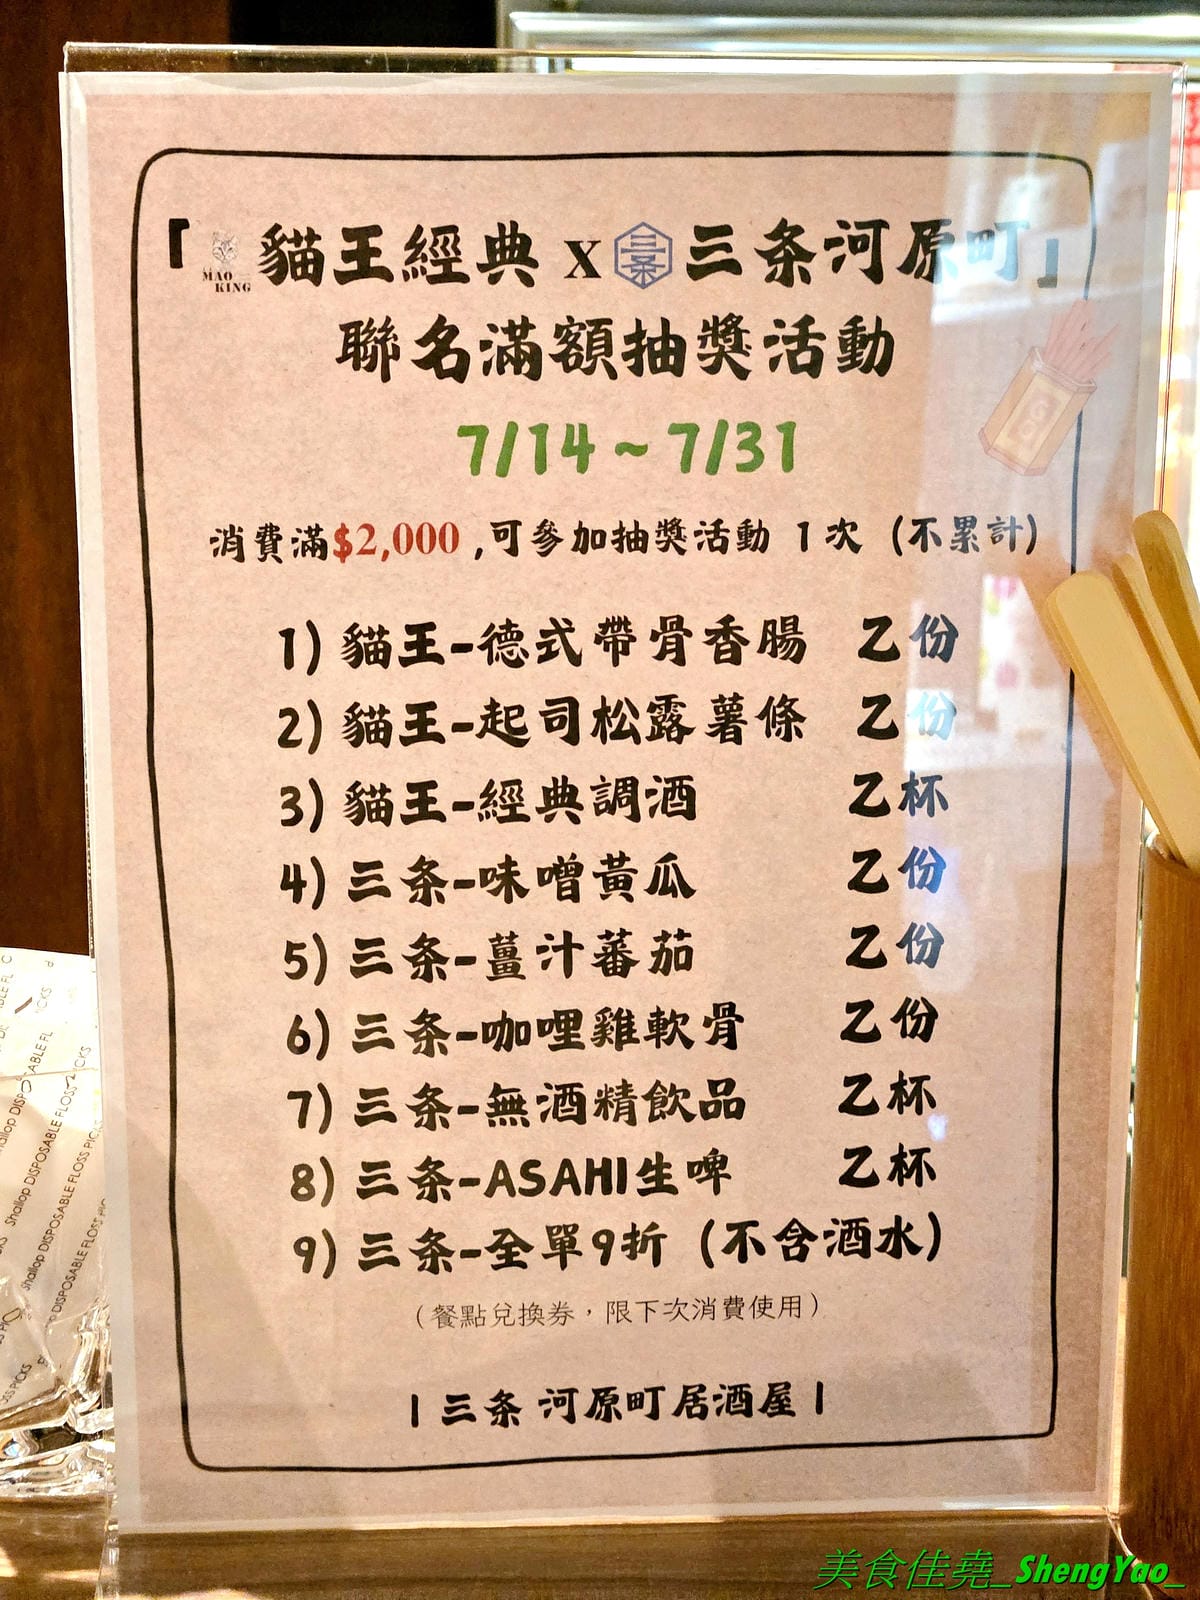 「MAO KING 貓王經典 X 三条 三条河原町」
聯名滿額抽獎活動
7/14~7/31
消費滿$2,000,可參加抽獎活動 1次 (不累計)
1) 貓王-德式帶骨香腸 乙份
2) 貓王-起司松露薯條 乙份
3) 貓王-經典調酒 乙杯
4) 三条-味噌黃瓜 乙份
5) 三条-薑汁蕃茄 乙份
6) 三条-咖哩雞軟骨 乙份
7) 三条-無酒精飲品 乙杯
8) 三条-ASAHI生啤 乙杯
9) 三条-全單9折 (不含酒水)
(餐點兌換券，限下次消費使用)
| 三条 河原町居酒屋 |
Shallop DISPOSABLE FLOSS PICKS
Shallop DISPOSABLE FLOSS PICKS
美食佳堯_ShengYao_